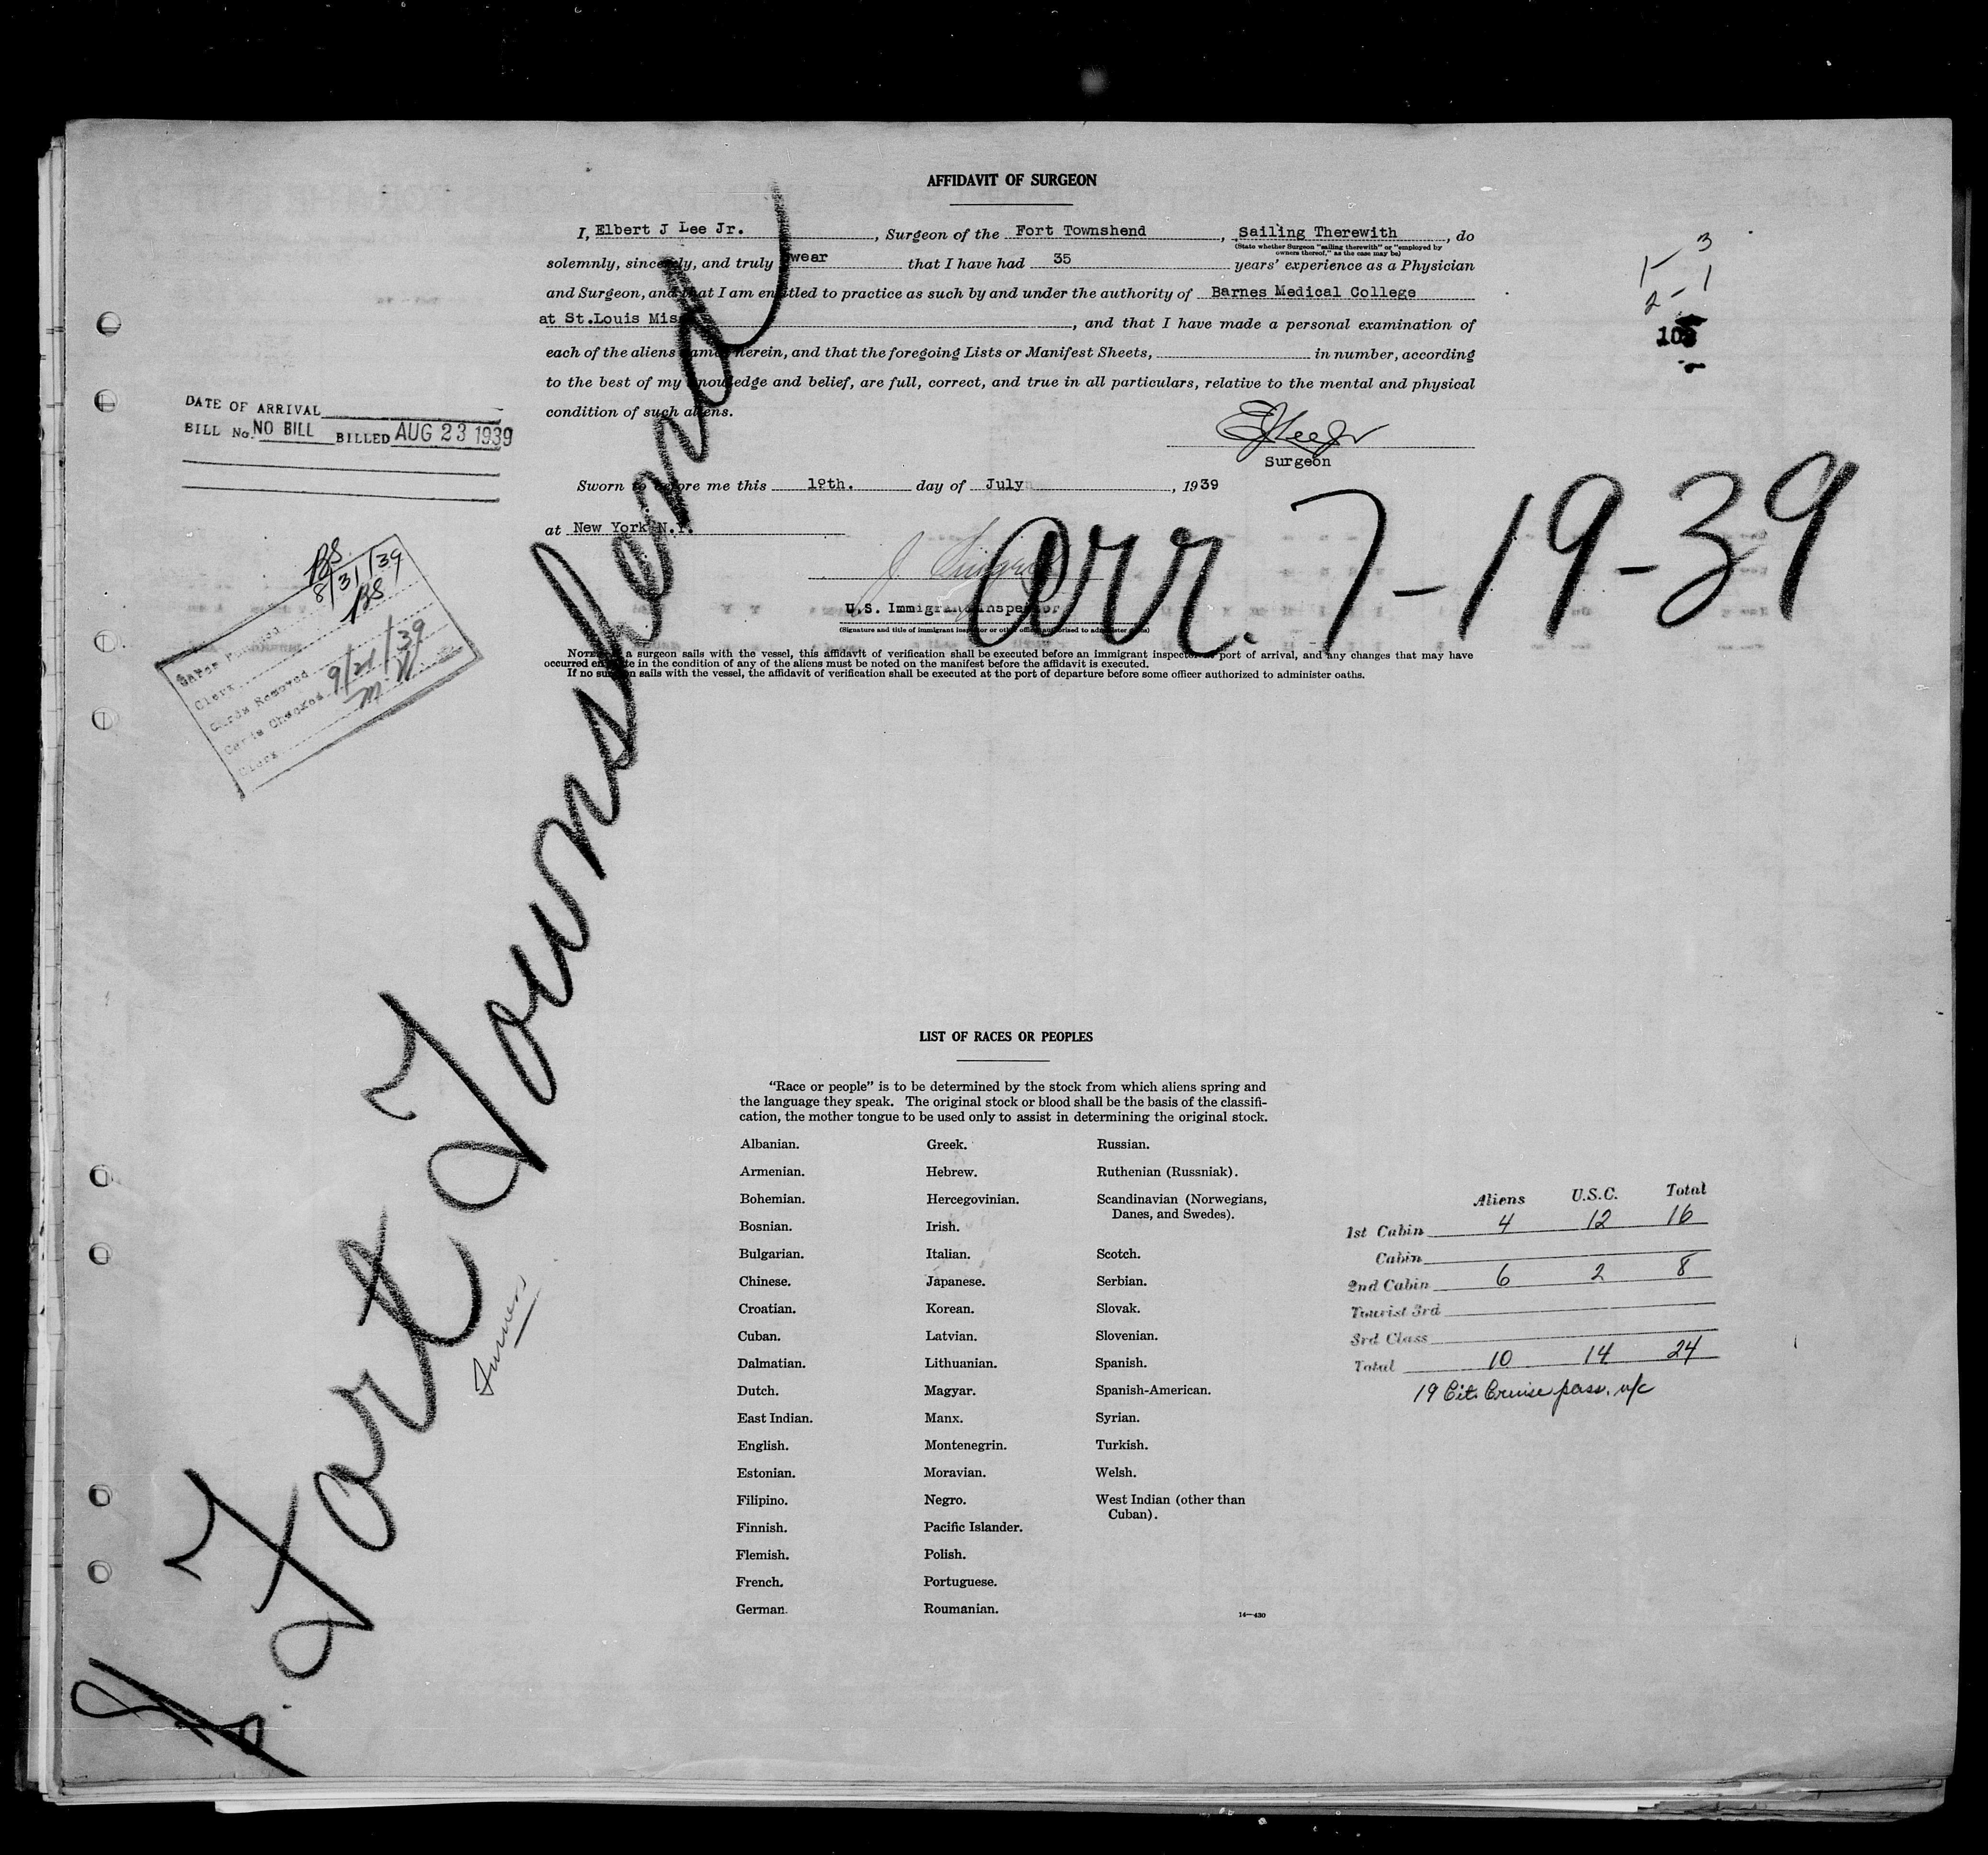 AFFIDAVIT OF SURGEON
I, Elbert J Lee Jr. , Surgeon of the Fort Townshend , Sailing Therewith , do
(State whether Surgeon "sailing therewith" or "employed by
owners thereof," as the case may be)
solemnly, sincerely, and truly swear that I have had 35 years' experience as a Physician
and Surgeon, and that I am entitled to practice as such by and under the authority of Barnes Medical College
at St.Louis Miss , and that I have made a personal examination of
each of the aliens named herein, and that the foregoing Lists or Manifest Sheets, in number, according
to the best of my knowledge and belief, are full, correct, and true in all particulars, relative to the mental and physical
condition of such aliens.
EJLeeJr
Surgeon
Sworn to before me this 19th. day of July , 1939
at New York N.Y.
U.S. Immigrant Inspector
(Signature and title of immigrant inspector or other officer authorised to administer oaths)
NOTE.—If a surgeon sails with the vessel, this affidavit of verification shall be executed before an immigrant inspector at port of arrival, and any changes that may have
occurred en route in the condition of any of the aliens must be noted on the manifest before the affidavit is executed.
If no surgeon sails with the vessel, the affidavit of verification shall be executed at the port of departure before some officer authorized to administer oaths.
1 - 3
2 - 1
DATE OF ARRIVAL
BILL No. NO BILL BILLED AUG 23 1939
8/31/39
Clerk
Cards Removed
Cards Checked 9/21/39
Clerk
arr. 7-19-39
S. Fort Townshend
Furness
LIST OF RACES OR PEOPLES
"Race or people" is to be determined by the stock from which aliens spring and
the language they speak. The original stock or blood shall be the basis of the classifi-
cation, the mother tongue to be used only to assist in determining the original stock.
Albanian.
Armenian.
Bohemian.
Bosnian.
Bulgarian.
Chinese.
Croatian.
Cuban.
Dalmatian.
Dutch.
East Indian.
English.
Estonian.
Filipino.
Finnish.
Flemish.
French.
German.
Greek.
Hebrew.
Hercegovinian.
Irish.
Italian.
Japanese.
Korean.
Latvian.
Lithuanian.
Magyar.
Manx.
Montenegrin.
Moravian.
Negro.
Pacific Islander.
Polish.
Portuguese.
Roumanian.
Russian.
Ruthenian (Russniak).
Scandinavian (Norwegians,
Danes, and Swedes).
Scotch.
Serbian.
Slovak.
Slovenian.
Spanish.
Spanish-American.
Syrian.
Turkish.
Welsh.
West Indian (other than
Cuban).
14—430
Aliens U.S.C. Total
1st Cabin 4 12 16
Cabin
2nd Cabin 6 2 8
Tourist 3rd
3rd Class
Total 10 14 24
19 Cit. Cruise pass.